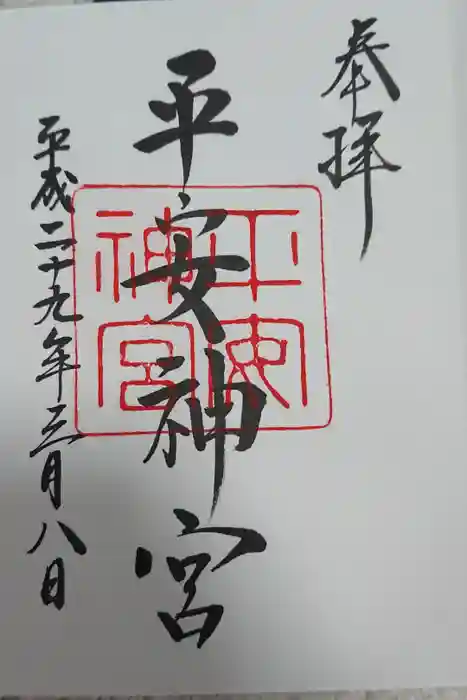 奉拝
平安神宮
平安神宮
平成二十九年三月八日